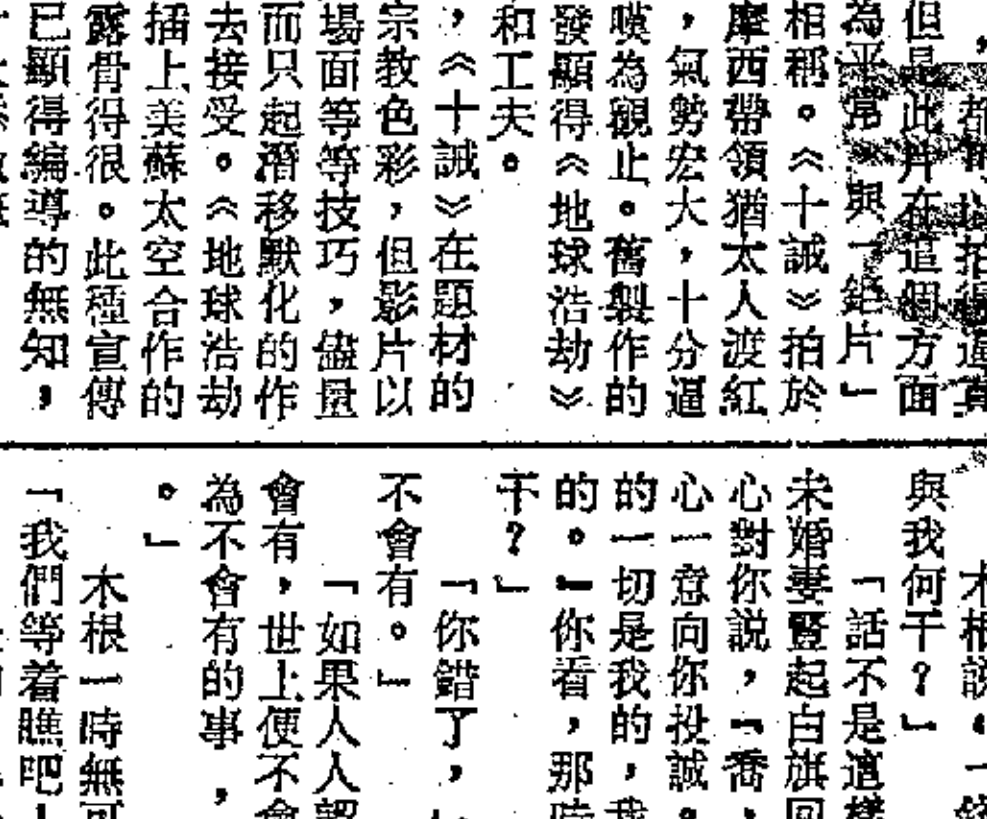 ，都可以拍得逼真
但是此片在這個方面
為平常，與「鉛片」
相稱。《十誡》拍於
摩西帶領猶太人渡紅
，氣勢宏大，十分逼
嘆為觀止。舊製作的
發顯得《地球浩劫》
和工夫。
，《十誡》在題材的
宗教色彩，但影片以
場面等等技巧，儘量
而只起潛移默化的作
去接受。《地球浩劫
插上美蘇太空合作的
露骨得很。此種宣傳
已顯得編導的無知，
木根說，「
與我何干？」
「話不是這樣
未婚妻豎起白旗回
心對你說，「喬，
心一意向你投誠。
的一切是我的，我
的。」你看，那時
干？」
「你錯了，
不會有。」
「如果人人
會有，世上便不會
為不會有的事，
。」
木根一時無可
「我們等着瞧吧！